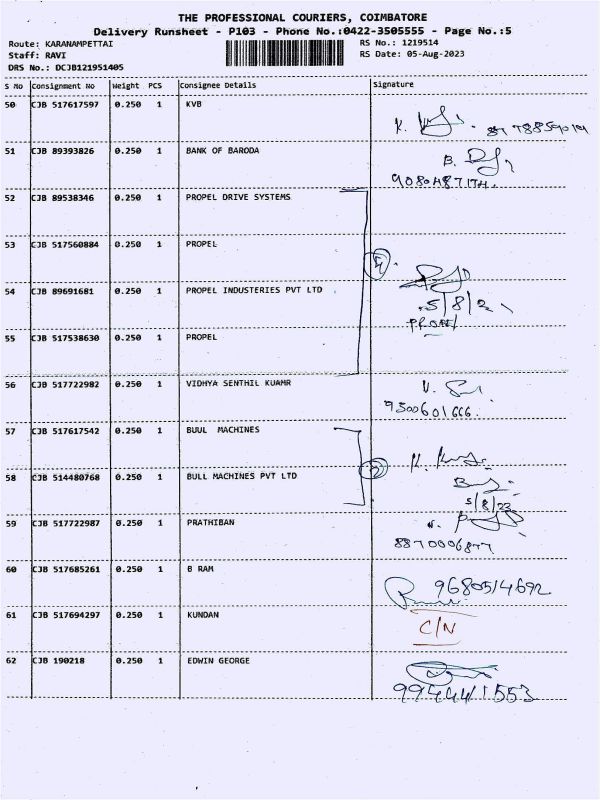 THE PROFESSIONAL COURIERS, COIMBATORE
Delivery Runsheet - P103 - Phone No.:0422-3505555 - Page No.:5
Route: KARANAMPETTAI RS No.: 1219514
Staff: RAVI RS Date: 05-Aug-2023
DRS No.: DCJB121951405
S No Consignment No Weight PCS Consignee Details Signature
50 CJB 517617597 0.250 1 KVB
51 CJB 89393826 0.250 1 BANK OF BARODA
52 CJB 89538346 0.250 1 PROPEL DRIVE SYSTEMS
53 CJB 517560884 0.250 1 PROPEL
54 CJB 89691681 0.250 1 PROPEL INDUSTERIES PVT LTD
5/8/2
55 CJB 517538630 0.250 1 PROPEL
56 CJB 517722982 0.250 1 VIDHYA SENTHIL KUAMR
9500601666.
57 CJB 517617542 0.250 1 BUUL MACHINES
58 CJB 514480768 0.250 1 BULL MACHINES PVT LTD
5/8/23
59 CJB 517722987 0.250 1 PRATHIBAN
60 CJB 517685261 0.250 1 B RAM 9680514692
61 CJB 517694297 0.250 1 KUNDAN C/N
62 CJB 190218 0.250 1 EDWIN GEORGE
9944411553